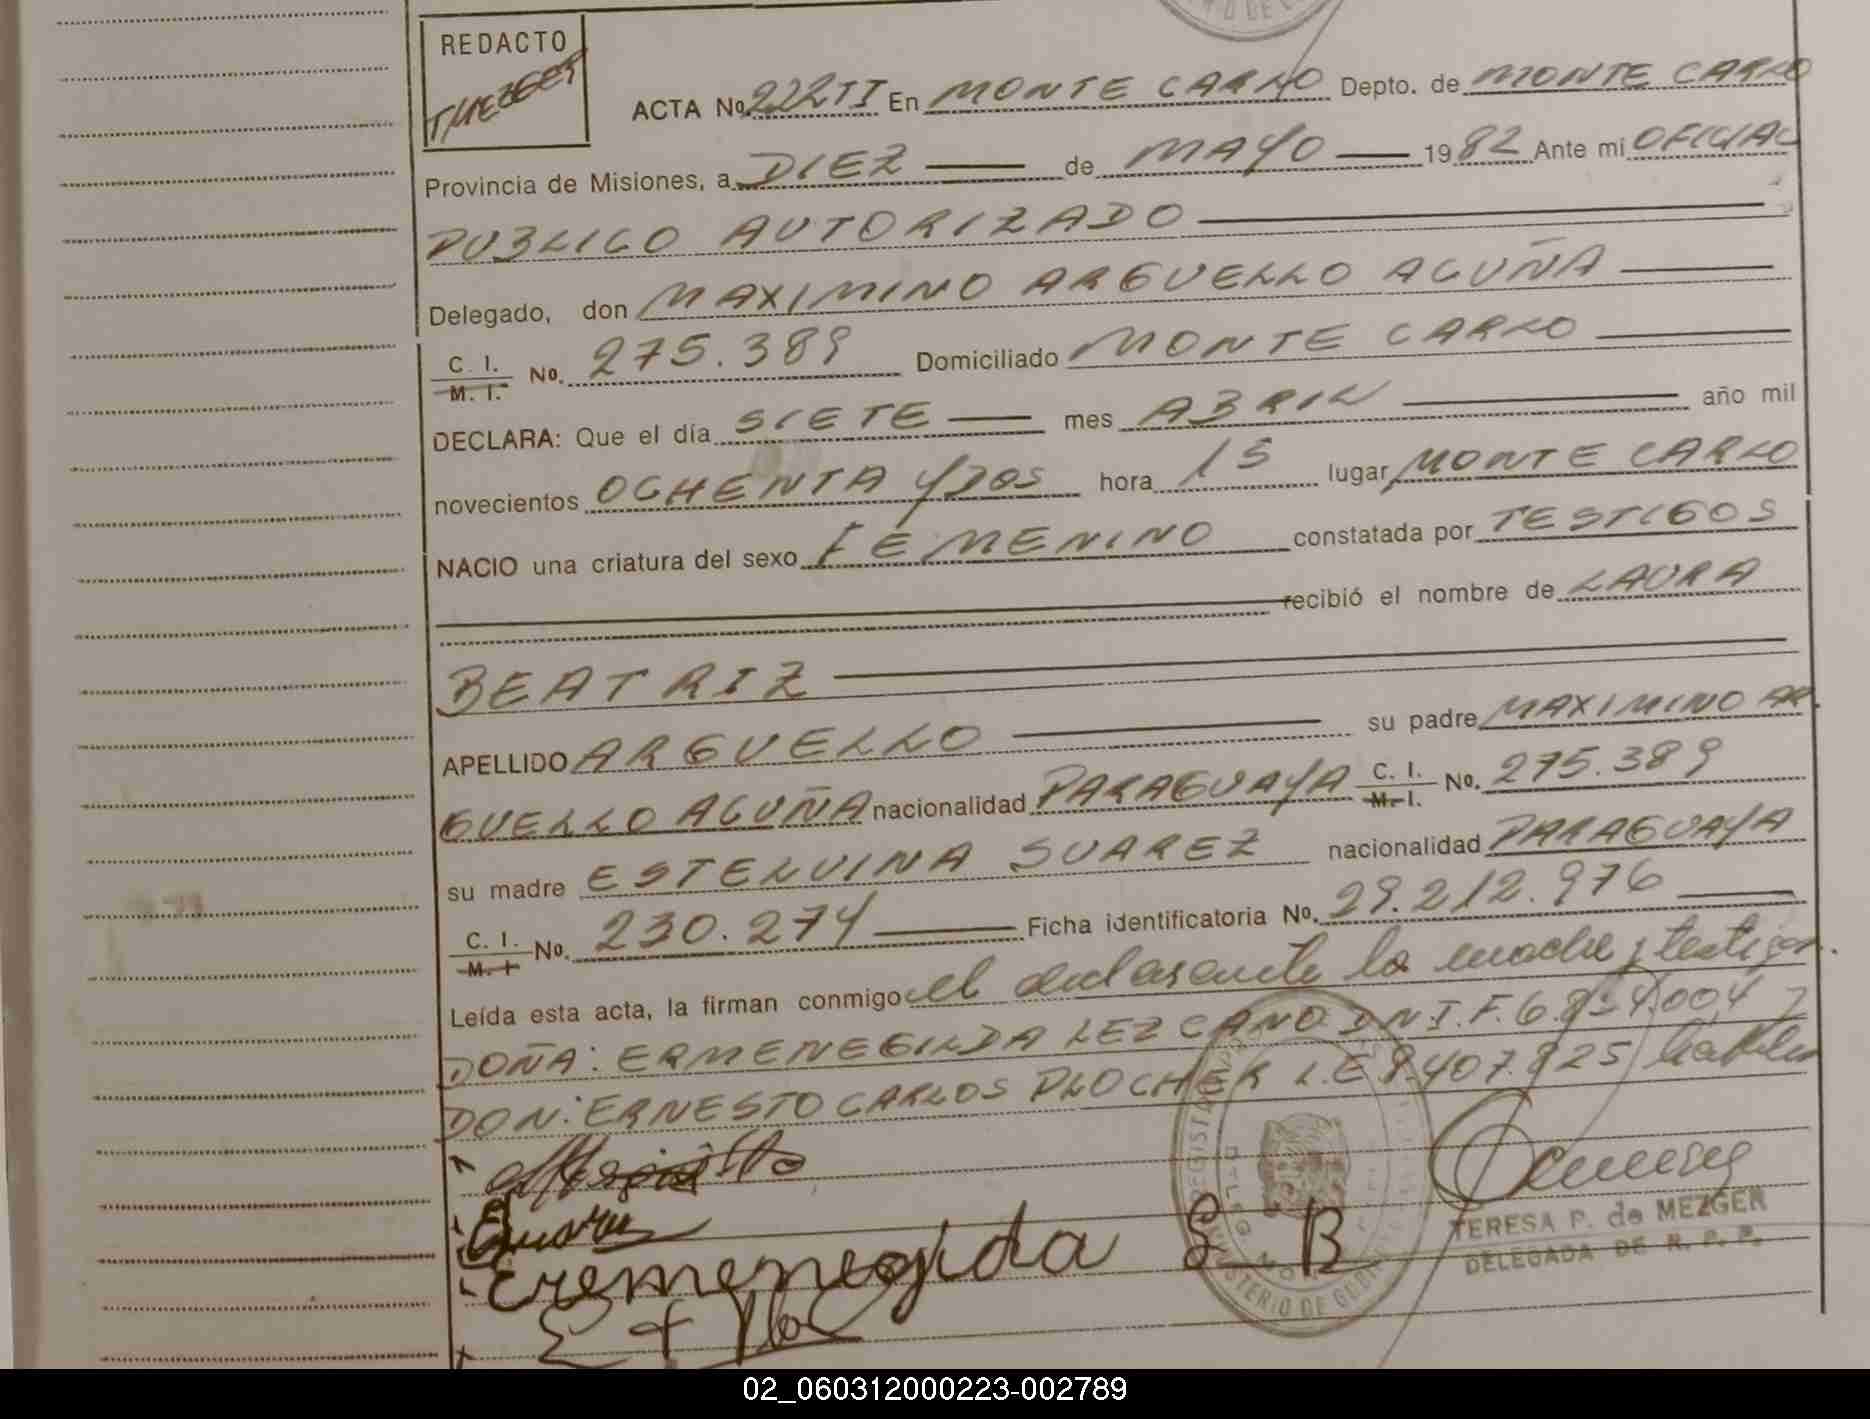 REDACTO
TMEZGER
ACTA No 222TI En MONTE CARLO Depto. de MONTE CARLO
Provincia de Misiones, a DIEZ de MAYO 1982 Ante mi OFICIAL
PUBLICO AUTORIZADO
Delegado, don MAXIMINO ARGUELLO ACUÑA
C. I. M. I. No. 275.389 Domiciliado MONTE CARLO
DECLARA: Que el día SIETE mes ABRIL año mil
novecientos OCHENTA Y DOS hora 15 lugar MONTE CARLO
NACIO una criatura del sexo FEMENINO constatada por TESTIGOS
recibió el nombre de LAURA
BEATRIZ
APELLIDO ARGUELLO su padre MAXIMINO AR
GUELLO ACUÑA nacionalidad PARAGUAYA C. I. M. I. No. 275.389
su madre ESTELVINA SUAREZ nacionalidad PARAGUAYA
C. I. M. I. No. 230.274 Ficha identificatoria No. 29.212.976
Leída esta acta, la firman conmigo el declarante la madre y testigos.
DOÑA: ERMENEGILDA LEZCANO DNI.F.6.854.004 y
DON: ERNESTO CARLOS PLOCHER L.E 8.407.825 habiles
Eremenegida L B
TERESA P. de MEZGER
DELEGADA DE R. P. P.
MINISTERIO DE GOBI
02_060312000223-002789